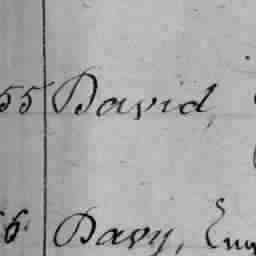 55 David,
6. Davy,